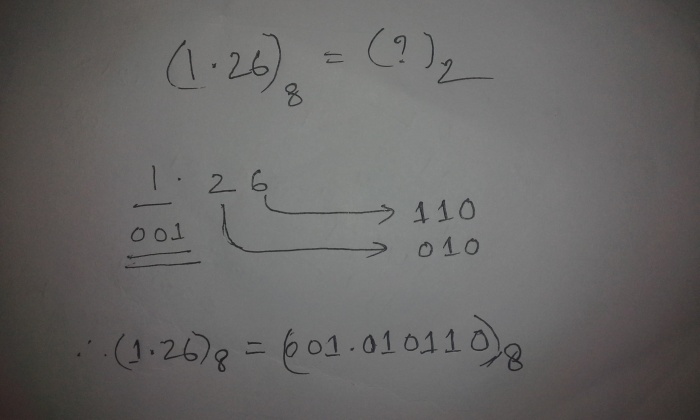 (1.26)8 = (?)2
1. 26
001
110
010
∴ (1.26)8 = (001.010110)8